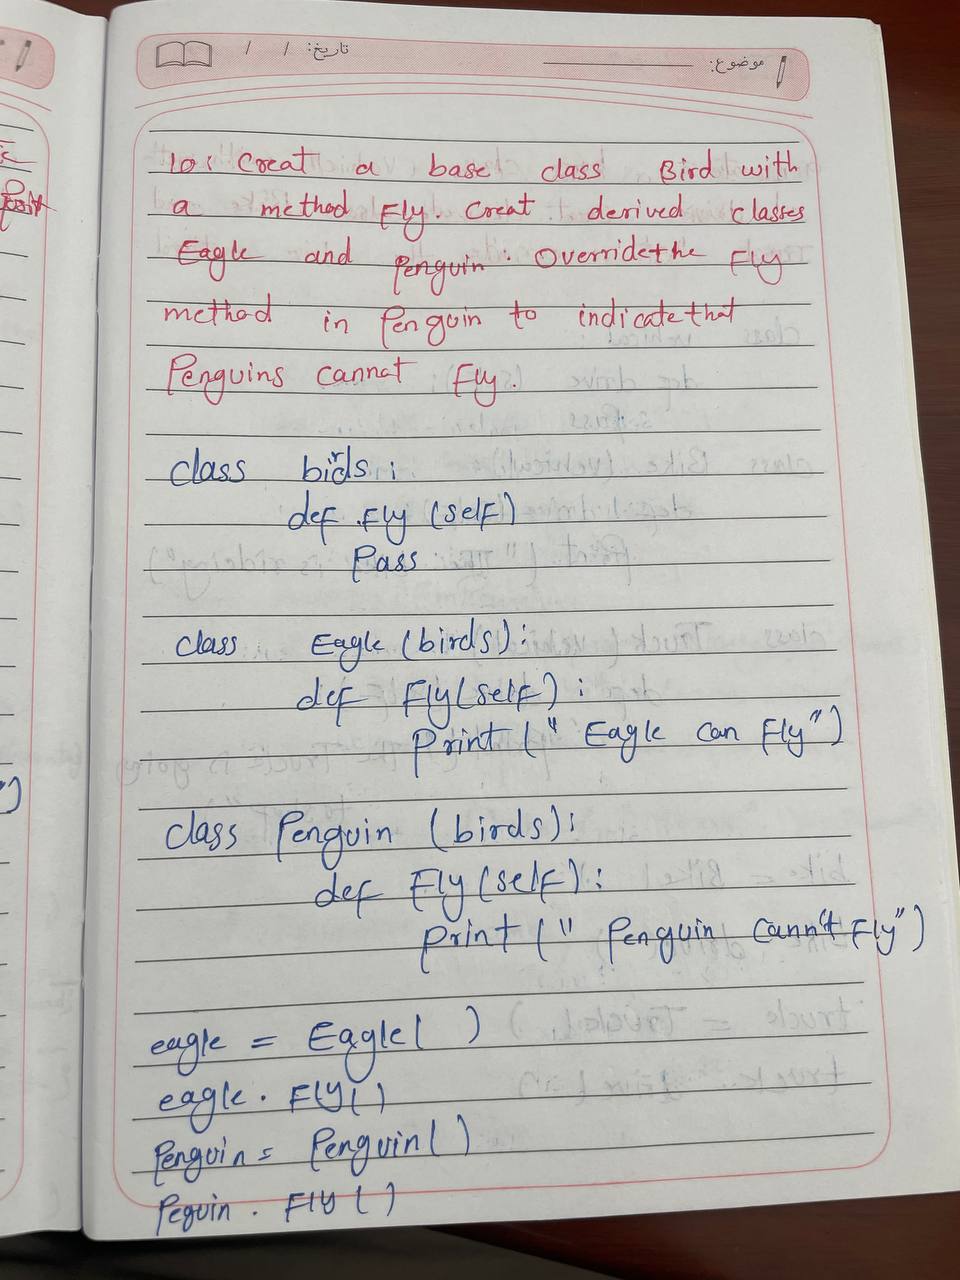 موضوع: تاریخ: / /
10: Creat a base class Bird with
a method Fly. Creat derived classes
Eagle and Penguin. Override the Fly
method in Penguin to indicate that
Penguins cannot Fly.
class birds:
def Fly (self)
Pass
class Eagle (birds):
def Fly (self):
Print (" Eagle can Fly")
class Penguin (birds):
def Fly (self):
Print (" Penguin Cann't Fly")
eagle = Eagle( )
eagle. Fly()
Penguin = Penguin( )
Peguin. Fly ( )